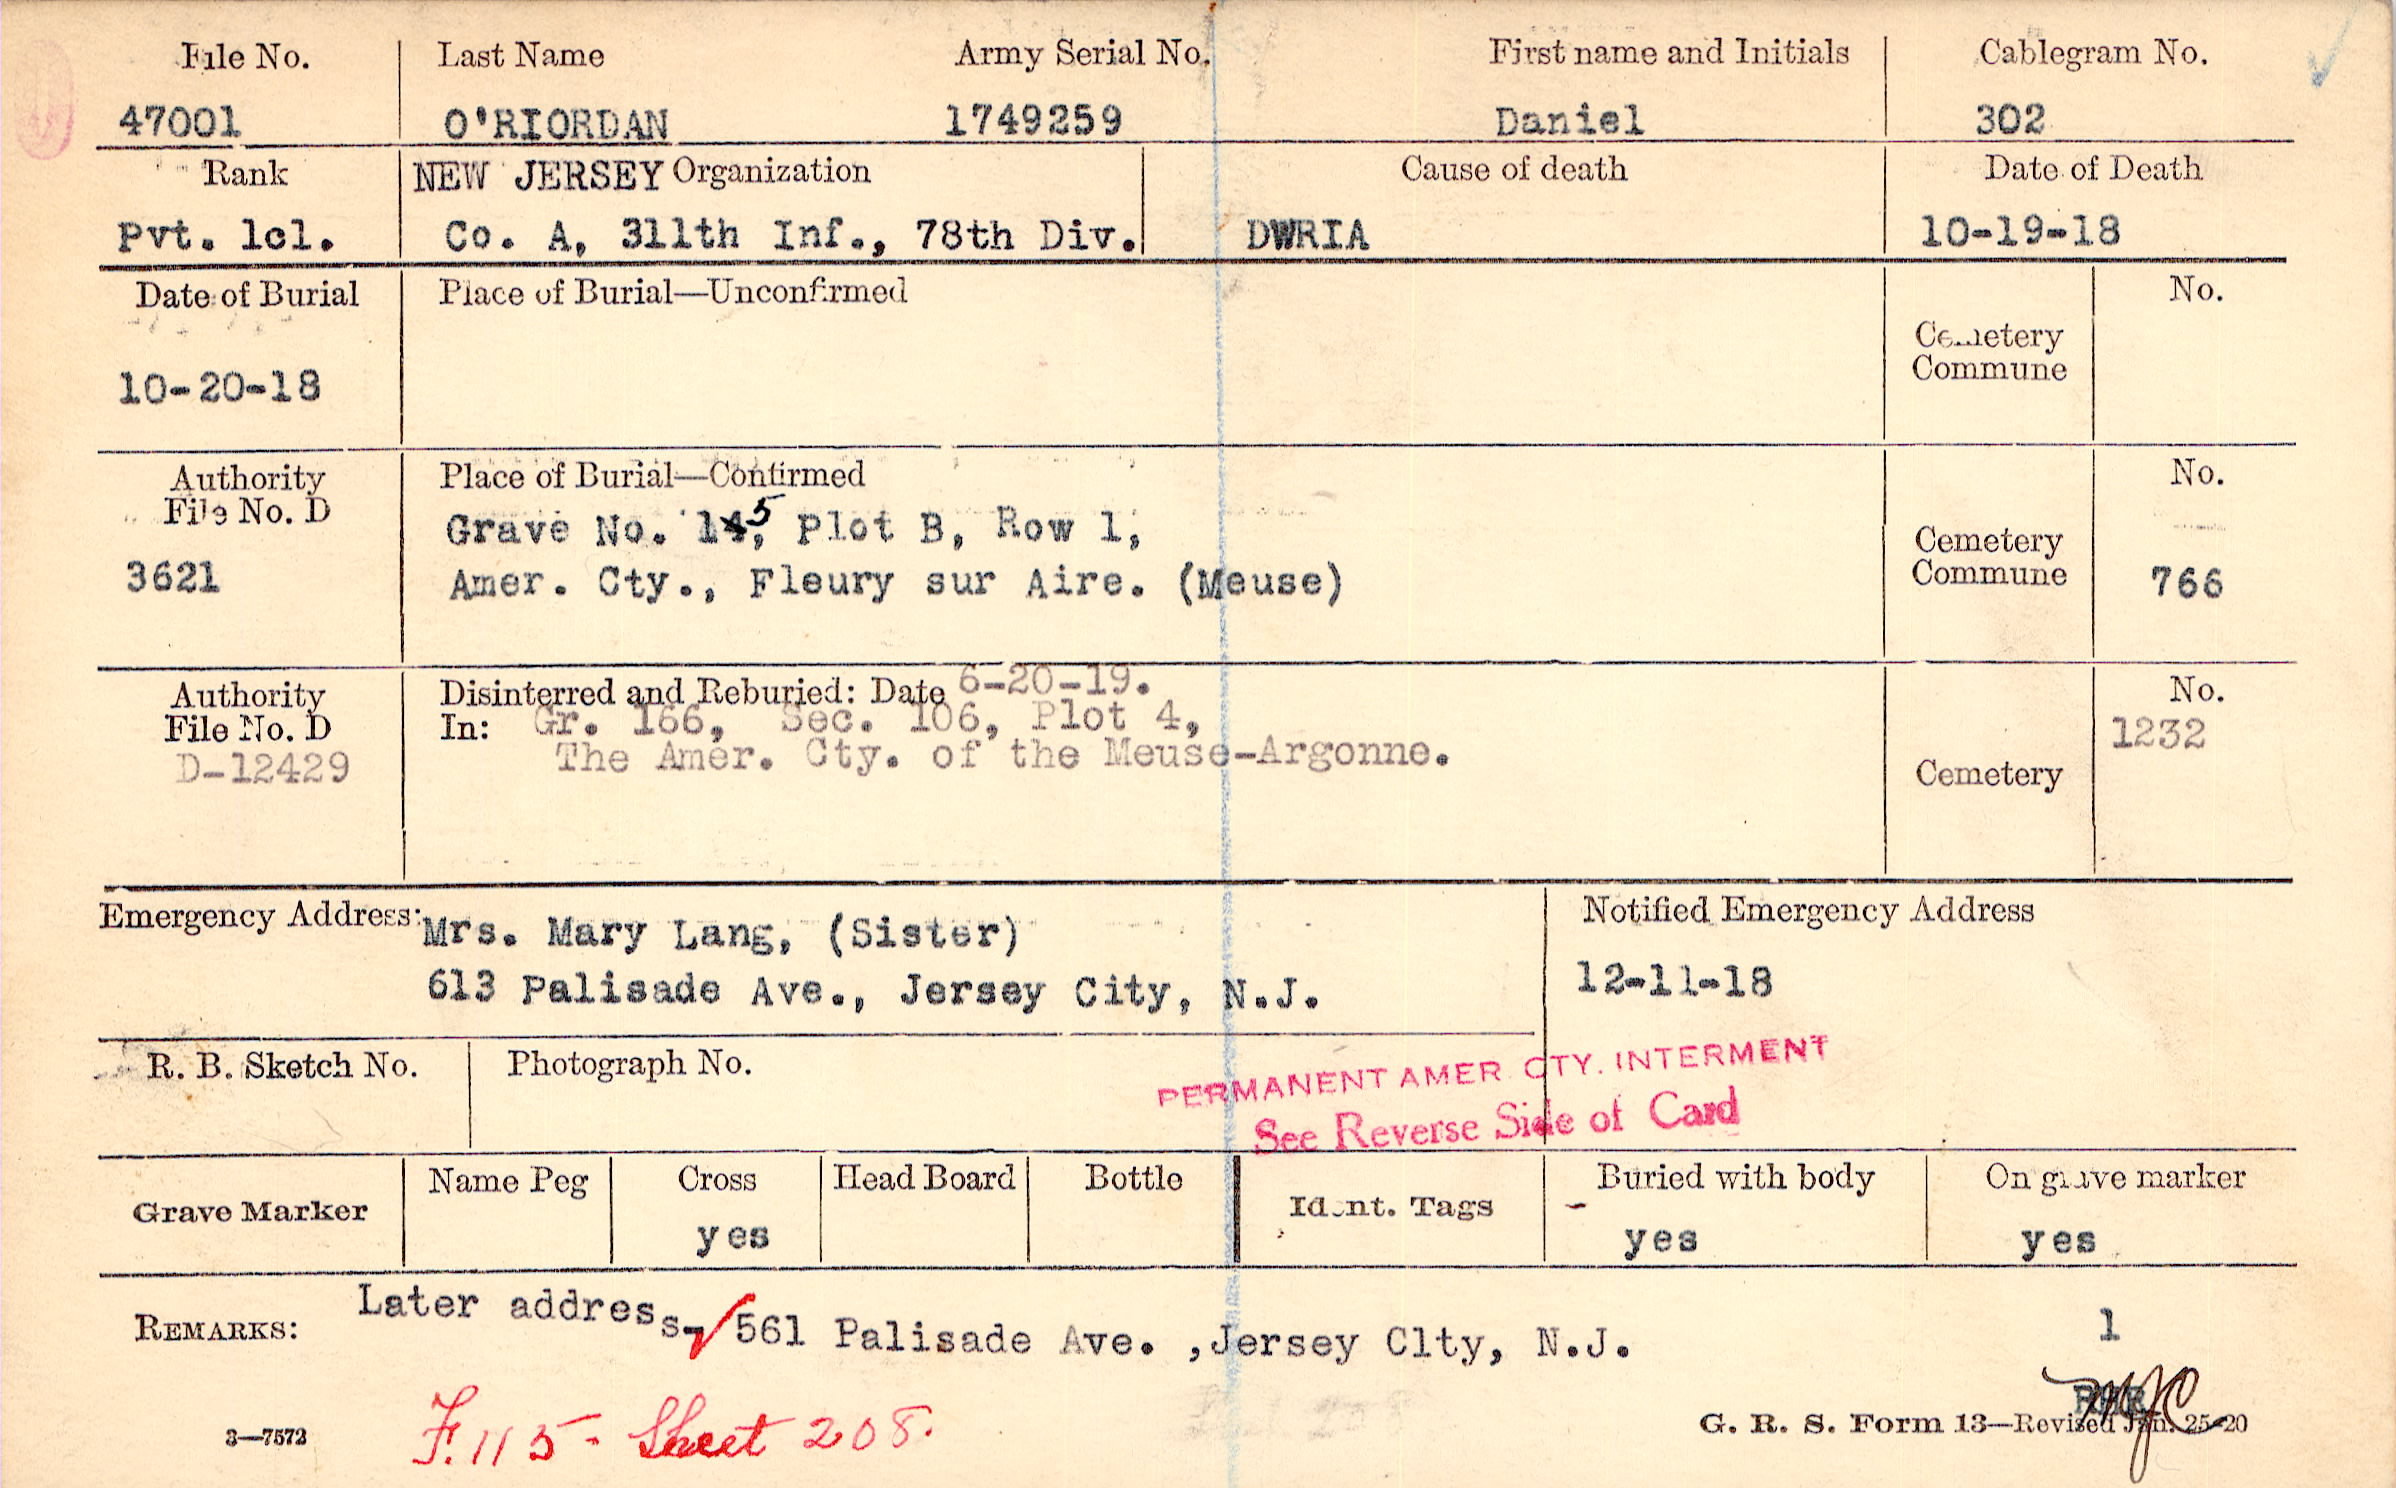 File No. Last Name Army Serial No. First name and Initials Cablegram No.
47001 O'RIORDAN 1749259 Daniel 302
Rank NEW JERSEY Organization Cause of death Date of Death
Pvt. 1cl. Co. A, 311th Inf., 78th Div. DWRIA 10-19-18
Date of Burial Place of Burial—Unconfirmed No.
Cemetery
Commune
10-20-18
Authority Place of Burial—Confirmed No.
File No. D
Grave No. 145, Plot B, Row 1,
3621 Amer. Cty., Fleury sur Aire. (Meuse)
Cemetery
Commune 766
Authority Disinterred and Reburied: Date 6-20-19. No.
File No. D In: Gr. 166, Sec. 106, Plot 4, 1232
D-12429 The Amer. Cty. of the Meuse-Argonne.
Cemetery
Emergency Address: Mrs. Mary Lang, (Sister) Notified Emergency Address
613 Palisade Ave., Jersey City, N.J. 12-11-18
R. B. Sketch No. Photograph No.
PERMANENT AMER CTY. INTERMENT
See Reverse Side of Card
Grave Marker Name Peg Cross Head Board Bottle Ident. Tags Buried with body On grave marker
yes yes yes
REMARKS: Later address- 561 Palisade Ave. ,Jersey CIty, N.J. 1
3—7572 F. 115 - Sheet 208. G. R. S. Form 13—Revised Jan. 25-20